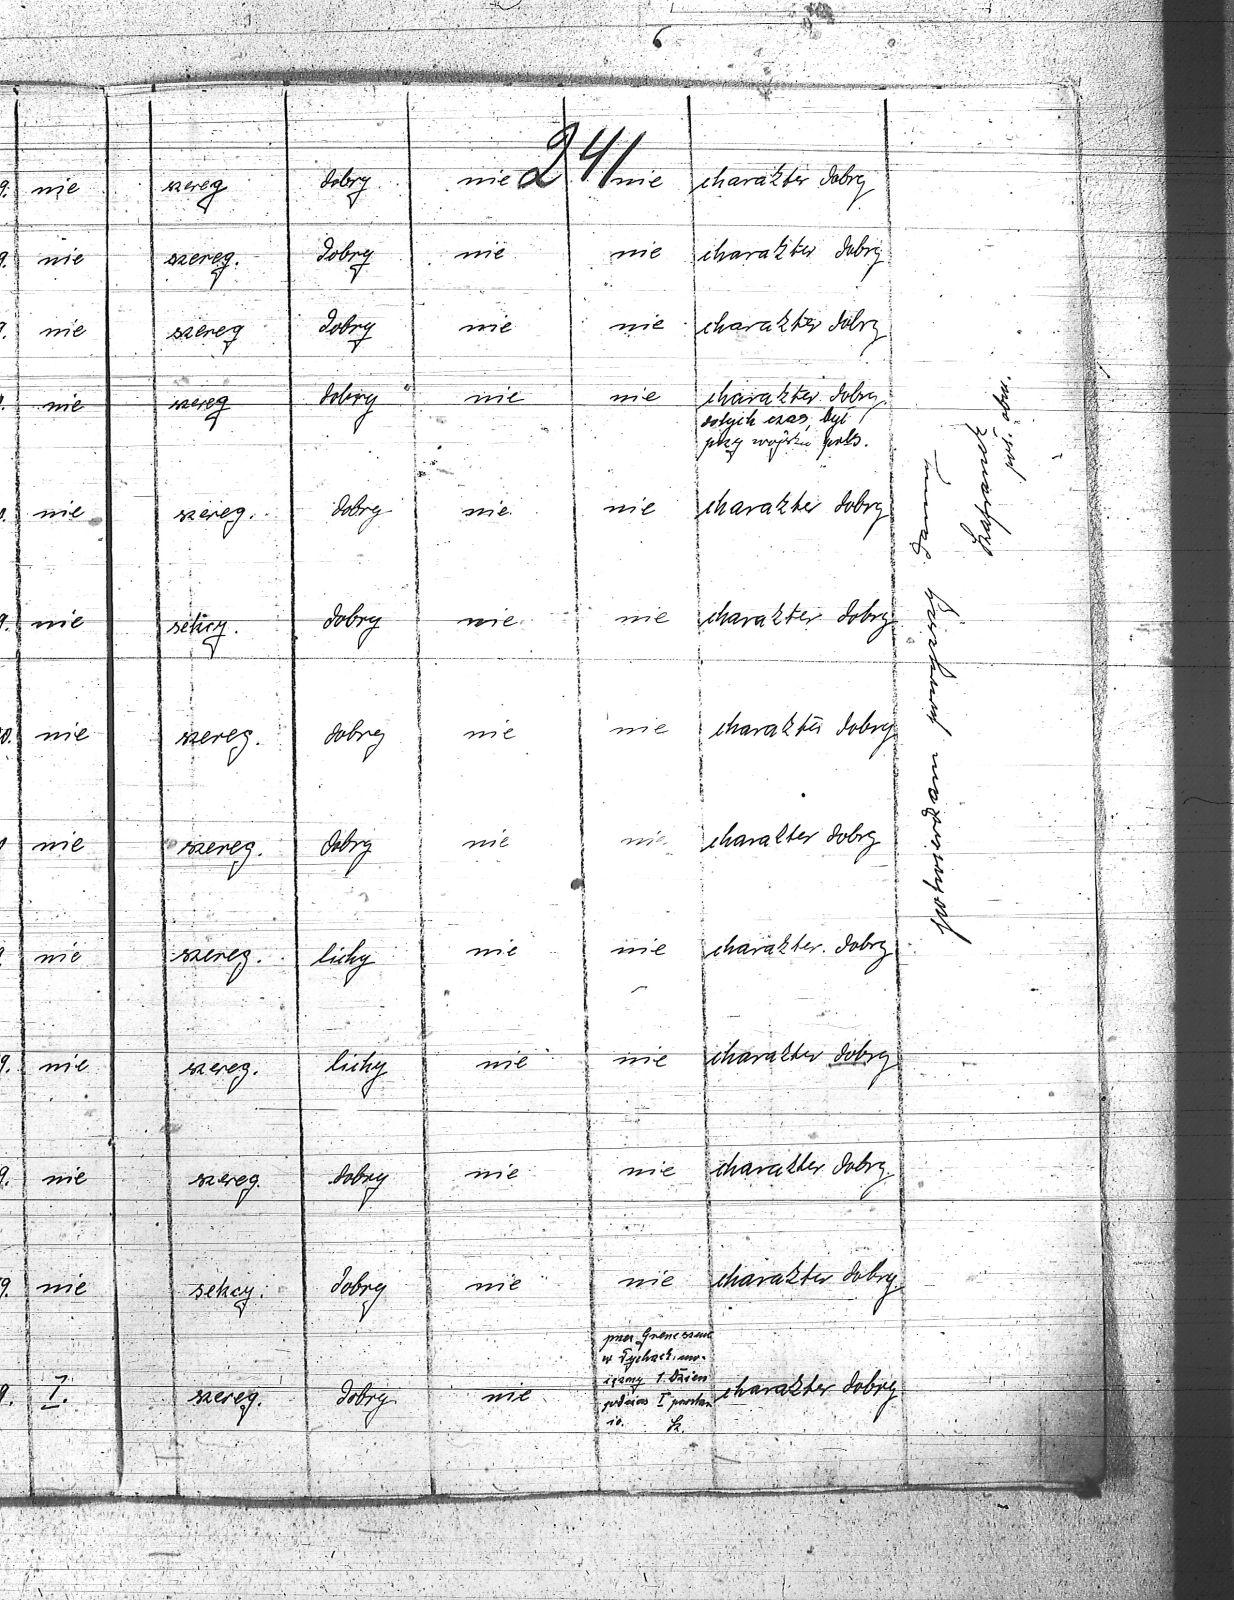 6
241
9. nie szereg dobry nie nie charakter dobry
9. nie szereg. dobry nie nie charakter dobry
nie szereg dobry nie nie charakter dobry
nie szereg dobry nie nie charakter dobry.
czas był
przy wojsku pols.
nie szereg. dobry nie nie charakter dobry
9. nie sekcy. dobry nie nie charakter dobry
0. nie szereg. dobry nie nie charakter dobry
nie szereg. dobry nie nie charakter dobry
nie szereg. lichy nie nie charakter. dobry
9. nie szereg. lichy nie nie charakter dobry
9. nie szereg. dobry nie nie charakter dobry.
9. nie sekcy. dobry nie nie charakter dobry.
9. I. szereg. dobry nie charakter dobry
przez
w Tychach
1. dzień
podczas I powstan
ia.
potwierdzam powyższy